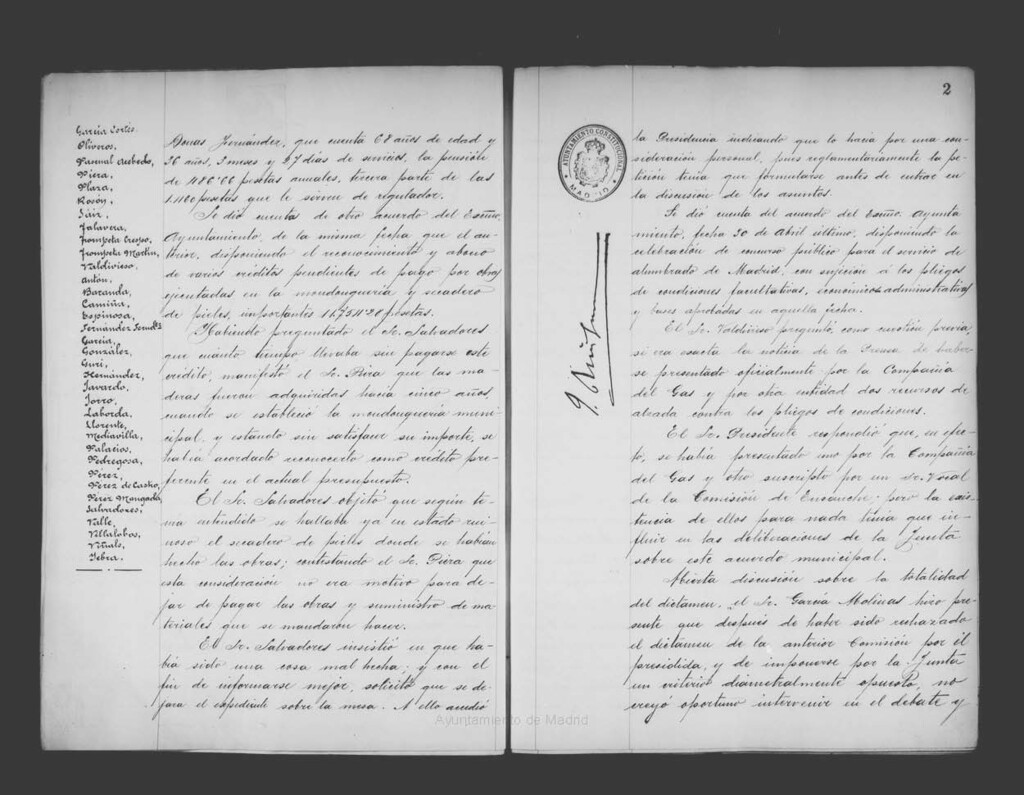 García Cortés.
Oliveros,
Pascual Acebedo,
Piera,
Plaza,
Rosón,
Sáiz,
Talavera,
Trompeta Crespo,
Trompeta Martín,
Valdivieso,
Antón,
Baranda,
Camiña,
Espinosa,
Fernández
García,
González,
Guri,
Hernández,
Javardo,
Jorro,
Laborda,
Llorente,
Mediavilla,
Palacios,
Pedregosa,
Pérez,
Pérez de Castro,
Pérez Mongada,
Salvadores,
Valle,
Villalobos,
Viñals,
Yebra.
Fernández, que cuenta 68 años de edad y
36 años, 3 meses y 27 días de servicios, la pensión
de 486'66 pesetas anuales, tercera parte de las
1.460 pesetas que le sirven de regulador.
Se dió cuenta de otro acuerdo del Excmo.
Ayuntamiento, de la misma fecha que el an-
terior, disponiendo el reconocimiento y abono
de varios créditos pendientes de pago por obras
ejecutadas en la mondonguería y secadero
de pieles, importantes pesetas.
Habiendo preguntado el Sr. Salvadores
que cuánto tiempo llevaba sin pagarse este
crédito, manifestó el Sr. Piera que las ma-
deras fueron adquiridas hacía cinco años,
cuando se estableció la mondonguería muni-
cipal, y estando sin satisfacer su importe, se
había acordado reconocerlo como crédito pre-
ferente en el actual presupuesto.
El Sr. Salvadores objetó que según te-
nía entendido se hallaba ya en estado rui-
noso el secadero de pieles donde se habían
hecho las obras; contestando el Sr. Piera que
esta consideración no era motivo para de-
jar de pagar las obras y suministro de ma-
teriales que se mandaron hacer.
El Sr. Salvadores insistió en que ha-
bía sido una cosa mal hecha; y con el
fin de informarse mejor, solicitó que se de-
jara el expediente sobre la mesa. A ello accedió
Ayuntamiento de Madrid
2
AYUNTAMIENTO CONSTITUCIONAL
MADRID
la Presidencia indicando que lo hacía por una con-
sideración personal, pues reglamentariamente la pe-
tición tenía que formularse antes de entrar en
la discusión de los asuntos.
Se dió cuenta del acuerdo del Excmo. Ayunta-
miento, fecha 30 de Abril último, disponiendo la
celebración de concurso público para el servicio de
alumbrado de Madrid, con sujeción á los pliegos
de condiciones facultativas, económico-administrativas
y bases aprobadas en aquella fecha.
El Sr. Valdivieso preguntó como cuestión previa,
si era exacta la noticia de la Prensa de haber-
se presentado oficialmente por la Compañía
del Gas y por otra entidad dos recursos de
alzada contra los pliegos de condiciones.
El Sr. Presidente respondió que, en efec-
to, se había presentado uno por la Compañía
del Gas y otro suscripto por un Sr. Vocal
de la Comisión de Ensanche; pero la exis-
tencia de ellos para nada tenía que in-
fluir en las deliberaciones de la Junta
sobre este acuerdo municipal.
Abierta discusión sobre la totalidad
del dictamen, el Sr. García Molinas hizo pre-
sente que después de haber sido rechazado
el dictamen de la anterior Comisión por él
presidida, y de imponerse por la Junta
un criterio diametralmente opuesto, no
creyó oportuno intervenir en el debate y